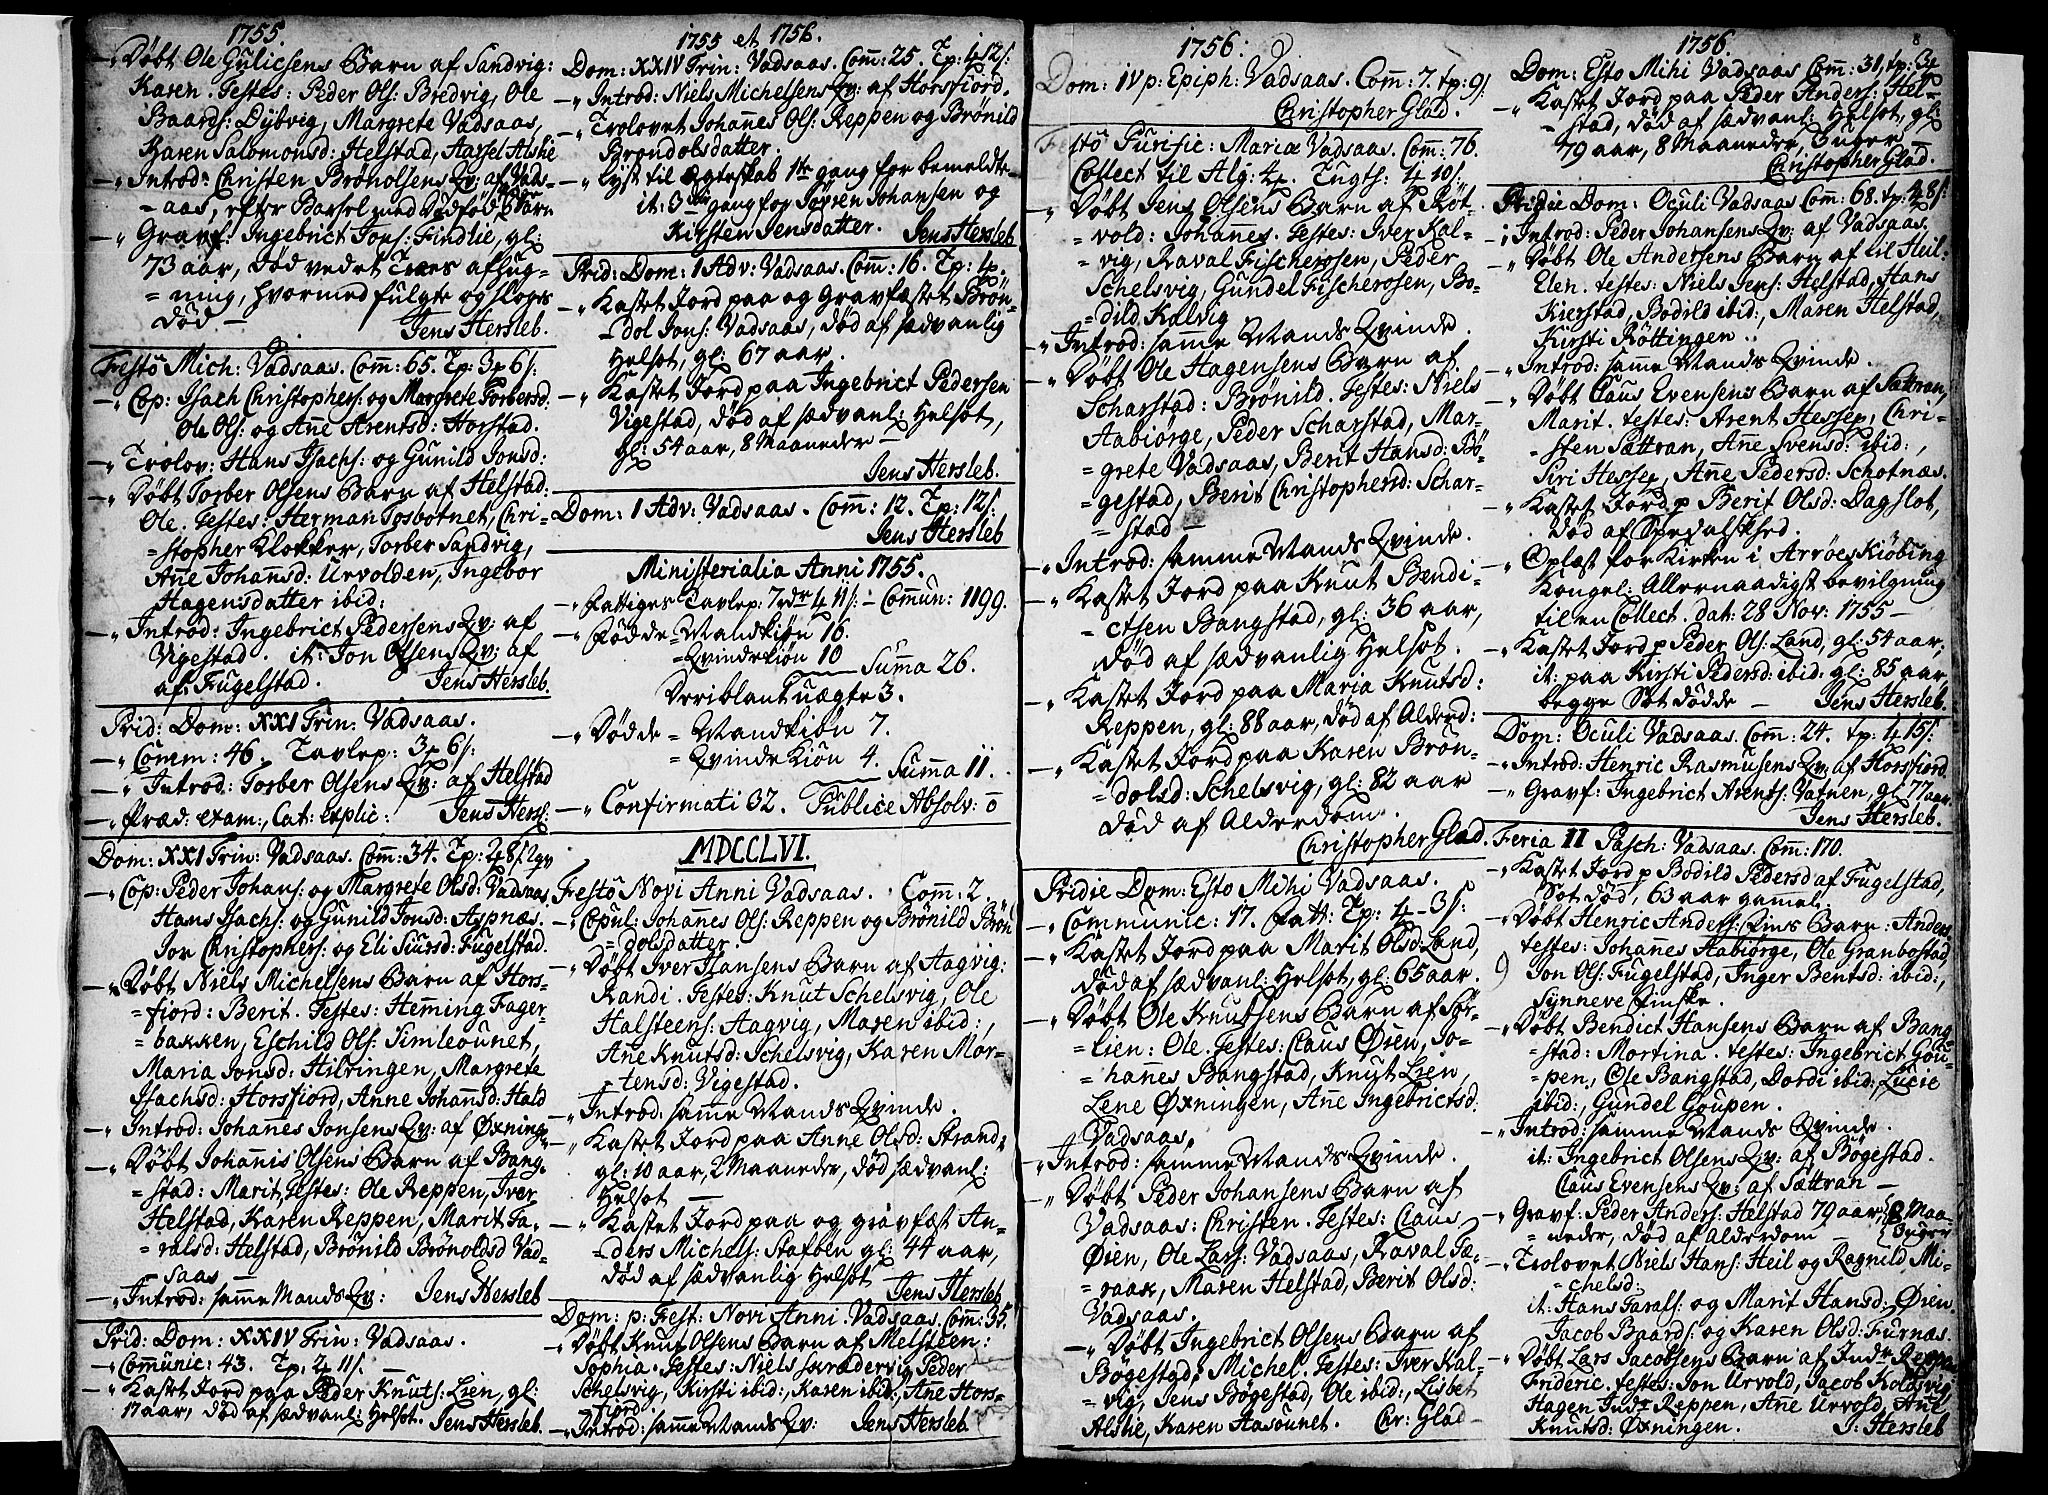 1755.
— „ Døbt Ole Gulicsens Barn af Sandvig:
Karen. Testes: Peder Ols: Bredvig, Ole
Baards: Dybvig, Margrete Vadsaas,
Karen Salomonsd: Helstad, Aarsel Alstie
— „ Introd: Christen Brønolsens Qv: af Vads-
= aas, efter Barsel med Dødfød Barn
— „ Gravf: Ingebrict Jons: Findlie, gl:
73 aar, død vedet Træes afhug-
= ning, hvormed fulgte og sloges
død — Jens Hersleb.
Festô Mich: Vadsaas. Comm: 65. Tp: 3 ₰ 6 ſ:
— „ Cop: Isach Christophers: og Margrete Torbersd.
Ole Ols: og Anne Arentsd: Horstad.
— „ Trolov: Hans Isachs: og Gunild Jonsd:
— „ Døbt Torber Olsens Barn af Helstad:
Ole. Testes: Herman Tosbotnet, Chri-
= stopher Klokker, Torber Sandvig,
Anne Johansd: Urvolden, Ingebor
Hagensdatter ibid:
— „ Introd: Ingebrict Pedersens Qv: af
Vigestad. it: Jon Olsens Qv: af
af: Fugelstad. Jens Hersleb.
Prid: Dom: XXI Trin: Vadsaas.
— „ Comm: 46. Tavlep: 3 ₰ 6 ſ:
— „ Introd: Torber Olsens Qv: af Helstad
— „ Præd: exam:, Cat: explic: Jens Hersl:
Dom: XXI Trin: Vadsaas. Comm: 34. Tp:
— „ Cop: Peder Johans: og Margrete Olsd: Vadsaas,
Hans Isachs: og Gunild Jonsd: Aspnæs.
Jon Christophers: og Eli Siursd: Fugelstad.
— „ Døbt Niels Michelsens Barn af Hors-
= fiord: Berit. Testes: Hemming Fager-
= bakken, Eschild Ols: Simleounet,
Maria Jonsd: Hilringen, Margrete
Isachsd: Horsfiord, Anne Johansd: Hald
— „ Introd: Johannes Jonsens Qv: af Øxning:
— „ Døbt Johannis Olsens Barn af Bang-
= stad: Marit, testes: Ole Reppen, Iver
Helstad, Karen Reppen, Marit Ta-
= ralsd: Helstad, Brønild Brønoldsd Vad-
= saas —
— „ Introd: samme Mands Qv: Jens Hersleb
Prid: Dom: XXIV Trin: Vadsaas.
— „ Communic: 43. Tp: 4 11 ſ. —
— „ Kastet Jord paa Peder Knuts: Lien, gl:
17 aar, død af sædvanl: Helsot. Jens Hersleb.
1755 et 1756.
Dom: XXIV Trin: Vadsaas. Comm: 25. Tp: 4 12 ſ:
— „ Introd: Niels Michelsens Qv: af Horsfiord.
— „ Trolovet Johannes Ols: Reppen og Brønild
Brøndolsdatter.
— „ Lyst til Egteskab 1te gang for bemeldte
it: 3die gang for Søvren Johansen og
Kirsten Jensdatter. Jens Hersleb
Prid: Dom: 1 Adv: Vadsaas. Comm: 16. Tp: 4 ₰.
— „ Kastet Jord paa og Gravfæstet Brøn-
= dol Jons: Vadsaas, død af sædvanlig
Helsot, gl: 67 aar.
— „ Kastet Jord paa Ingebrict Pedersen
Vigestad, død af sædvanl: Helsot,
gl: 54 aar, 8 Maaneder —
Jens Hersleb.
Dom: 1 Adv: Vadsaas. Comm: 12. Tp: 12 ſ:
Jens Hersleb
Ministerialia Anni 1755.
— „ Fattiges Tavlep: 7 rdr 4 11 ſ: — Commun: 1199.
— „ Fødde = Mandkiøn 16.
= Qvindekiøn 10
Summa 26.
Deriblant uægte 3.
— „ Dødde = Mandkiøn 7.
= Qvindekiøn 4.
Summa 11.
— „ Confirmati 32. Publice Absolv: 0
MDCCLVI.
Festô Novi Anni Vadsaas. Com: 2.
— „ Copul: Johannes Ols: Reppen og Brønild Brøn
= dolsdatter.
— „ Døbt Iver Hansens Barn af Aagvig:
Randi. Testes: Knut Schelsvig, Ole
Halsteens: Aagvig, Maren ibid:,
Ane Knutsd: Schelsvig, Karen Mor-
= tensd: Vigestad.
— „ Introd: samme Mands Qvinde.
— „ Kastet Jord paa Anne Olsd: Strand,
gl: 10 aar, 2 Maaneder, død sædvanl:
Helsot —
— „ Kastet Jord paa og gravfæst An-
= ders Michels: Stafben gl: 44 aar,
død af sædvanlig Helsot
Jens Hersleb
Dom: p: Fest: Novi Anni. Vadsaas. Comm: 35.
— „ Døbt Knut Olsens Barn af Melsteen:
Sophia. Testes: Niels skræder, Peder
Schelsvig, Kirsti ibid:, Karen ibid:, Ane Hors-
= fiord.
— „ Introd: samme Mands Qv: Jens Hersleb
1756:
Dom: IV p: Epiph: Vadsaas. Comm: 7. tp: 9 ſ.
Christopher Glad.
Festô Purific: Mariæ Vadsaas. Comm: 76.
Collect til Alg: 4 ₰. Tugts: 4 10 ſ:
— „ Døbt Jens Olsens Barn af Røt-
= vold: Johannes. Testes: Iver Kal-
= vig, Raval Fischerosen, Peder
Schelsvig, Gundel Fischerosen, Bo-
= dild Kalvig
— „ Introd: samme Mands Qvinde.
— „ Døbt Ole Hagensens Barn af
Scharstad: Brønild. Testes: Niels
Aabiørge, Peder Scharstad, Mar-
= grete Vadsaas, Berit Hansd: Bø-
= gestad, Berit Christophersd: Schar-
= stad —
— „ Introd: samme Mands Qvinde.
— „ Kastet Jord paa Knut Bendi-
= ctsen Bangstad, gl: 36 aar,
død af sædvanlig Helsot.
— „ Kastet Jord paa Maria Knutsd:
Reppen, gl: 88 aar, død af Alderd:
— „ Kastet Jord paa Karen Brøn-
= dolsd: Schelsvig, gl: 82 aar
død af Alderdom.
Christopher Glad.
Pridie Dom: Esto Mihi Vadsaas.
— „ Communic: 17. Fatt: Tp: 4 — 3 ſ:
— „ Kastet Jord paa Marit Olsd: Land,
død af sædvanl: Helsot, gl: 65 aar.
— „ Døbt Ole Knutsens Barn af Sør-
= lien: Ole. Testes: Claus Øien, Jo-
= hannes Bangstad, Knut Lien,
Lene Øxningen, Ane Ingebrictsd:
Vadsaas,
— „ Introd: samme Mands Qvinde.
— „ Døbt Peder Johansens Barn af
Vadsaas: Christen. Testes: Claus
Øien, Ole Lars: Vadsaas, Raval Tæ-
= raak, Maren Helstad, Berit Olsd:
Vadsaas.
— „ Døbt Ingebrict Olsens Barn af
Bøgestad: Michel. Testes: Iver Kal-
= vig, Jens Bøgestad, Ole ibid:, Lisbet
Alstie, Karen Hasounet. Chr: Glad
1756.
8
Dom: Esto Mihi Vadsaas Comm: 31, tp: 3 ₰
— „ Kastet Jord paa Peder Anders: Hel-
= stad, død af sædvanl: Helsot, gl:
79 aar, 8 Maaneder, 3 uger —
Christopher Glad.
Pridie Dom: Oculi Vadsaas Comm: 68. tp: 4 8 ſ.
— „ Introd: Peder Johansens Qv: af Vadsaas.
— „ Døbt Ole Andersens Barn af lil Heil:
Elen. testes: Niels Jens: Helstad, Hans
Kierstad, Bodild ibid:, Maren Helstad,
Kirsti Røttingen.
— „ Introd: samme Mands Qvinde.
— „ Døbt Claus Evensens Barn af Sættran,
Marit. testes: Arent Hessep, Chri-
= sten Sættran, Anne Svensd: ibid:,
Siri Hessep, Anne Pedersd: Schotnæs.
— „ Kastet Jord p Berit Olsd: Dagslot,
død af Spedalskhed.
— „ Oplæst for Kirken i Arrøes Kiøbing
Kongel: Allernaadigst bevilgning
til en Collect. dat: 28 Nov: 1755 —
— „ Kastet Jord p Peder Ols: Land, gl: 54 aar,
it: paa Kirsti Pedersd: ibid: gl: 85 aar,
begge Sot dødde — Jens Hersleb
Dom: Oculi Vadsaas. Comm: 24. tp: 4 15 ſ:
— „ Introd: Henric Rasmusens Qv: af Horsfiord.
— „ Gravf: Ingebrict Arents: Vatnen, gl 77 aar
Jens Hersleb.
Feria II Pasch: Vadsaas. Comm: 170.
— „ Kastet Jord p Bodild Pedersd af Fugelstad,
Sot død, 63 aar gamel.
— „ Døbt Henric Anders: Fins Barn: Anders
testes: Johannes Aabiørge, Ole Granbostad
Jon Ols: Fugelstad, Inger Bentsd: ibid:,
Synneve Finske.
— „ Døbt Bendict Hansens Barn af Bang-
= stad: Mortina. testes: Ingebrict Gou-
= pen, Ole Bangstad, Dordi ibid:, Lucie
ibid:, Gundel Goupen.
— „ Introd: samme Mands Qvinde.
it: Ingebrict Olsens Qv: af Bøgestad.
Claus Evensens Qv: af Sættran —
— „ Gravf: Peder Anders: Helstad 79 aar, 8 Maa-
= neder, død af Alderdom — 3 uger
— „ Trolovet Niels Hans: Heil og Ragnild Mi-
= chelsd:
it: Hans Tarals: og Marit Hansd: Øien,
Jacob Baards: og Karen Olsd: Furnæs.
— „ Døbt Lars Jacobsens Barn af Indr Reppen
Frideric. testes: Jon Urvold, Jacob Kolsvig,
Hagen Indr Reppen, Ane Urvold, Ane
Knutsd: Øxningen. J: Hersleb